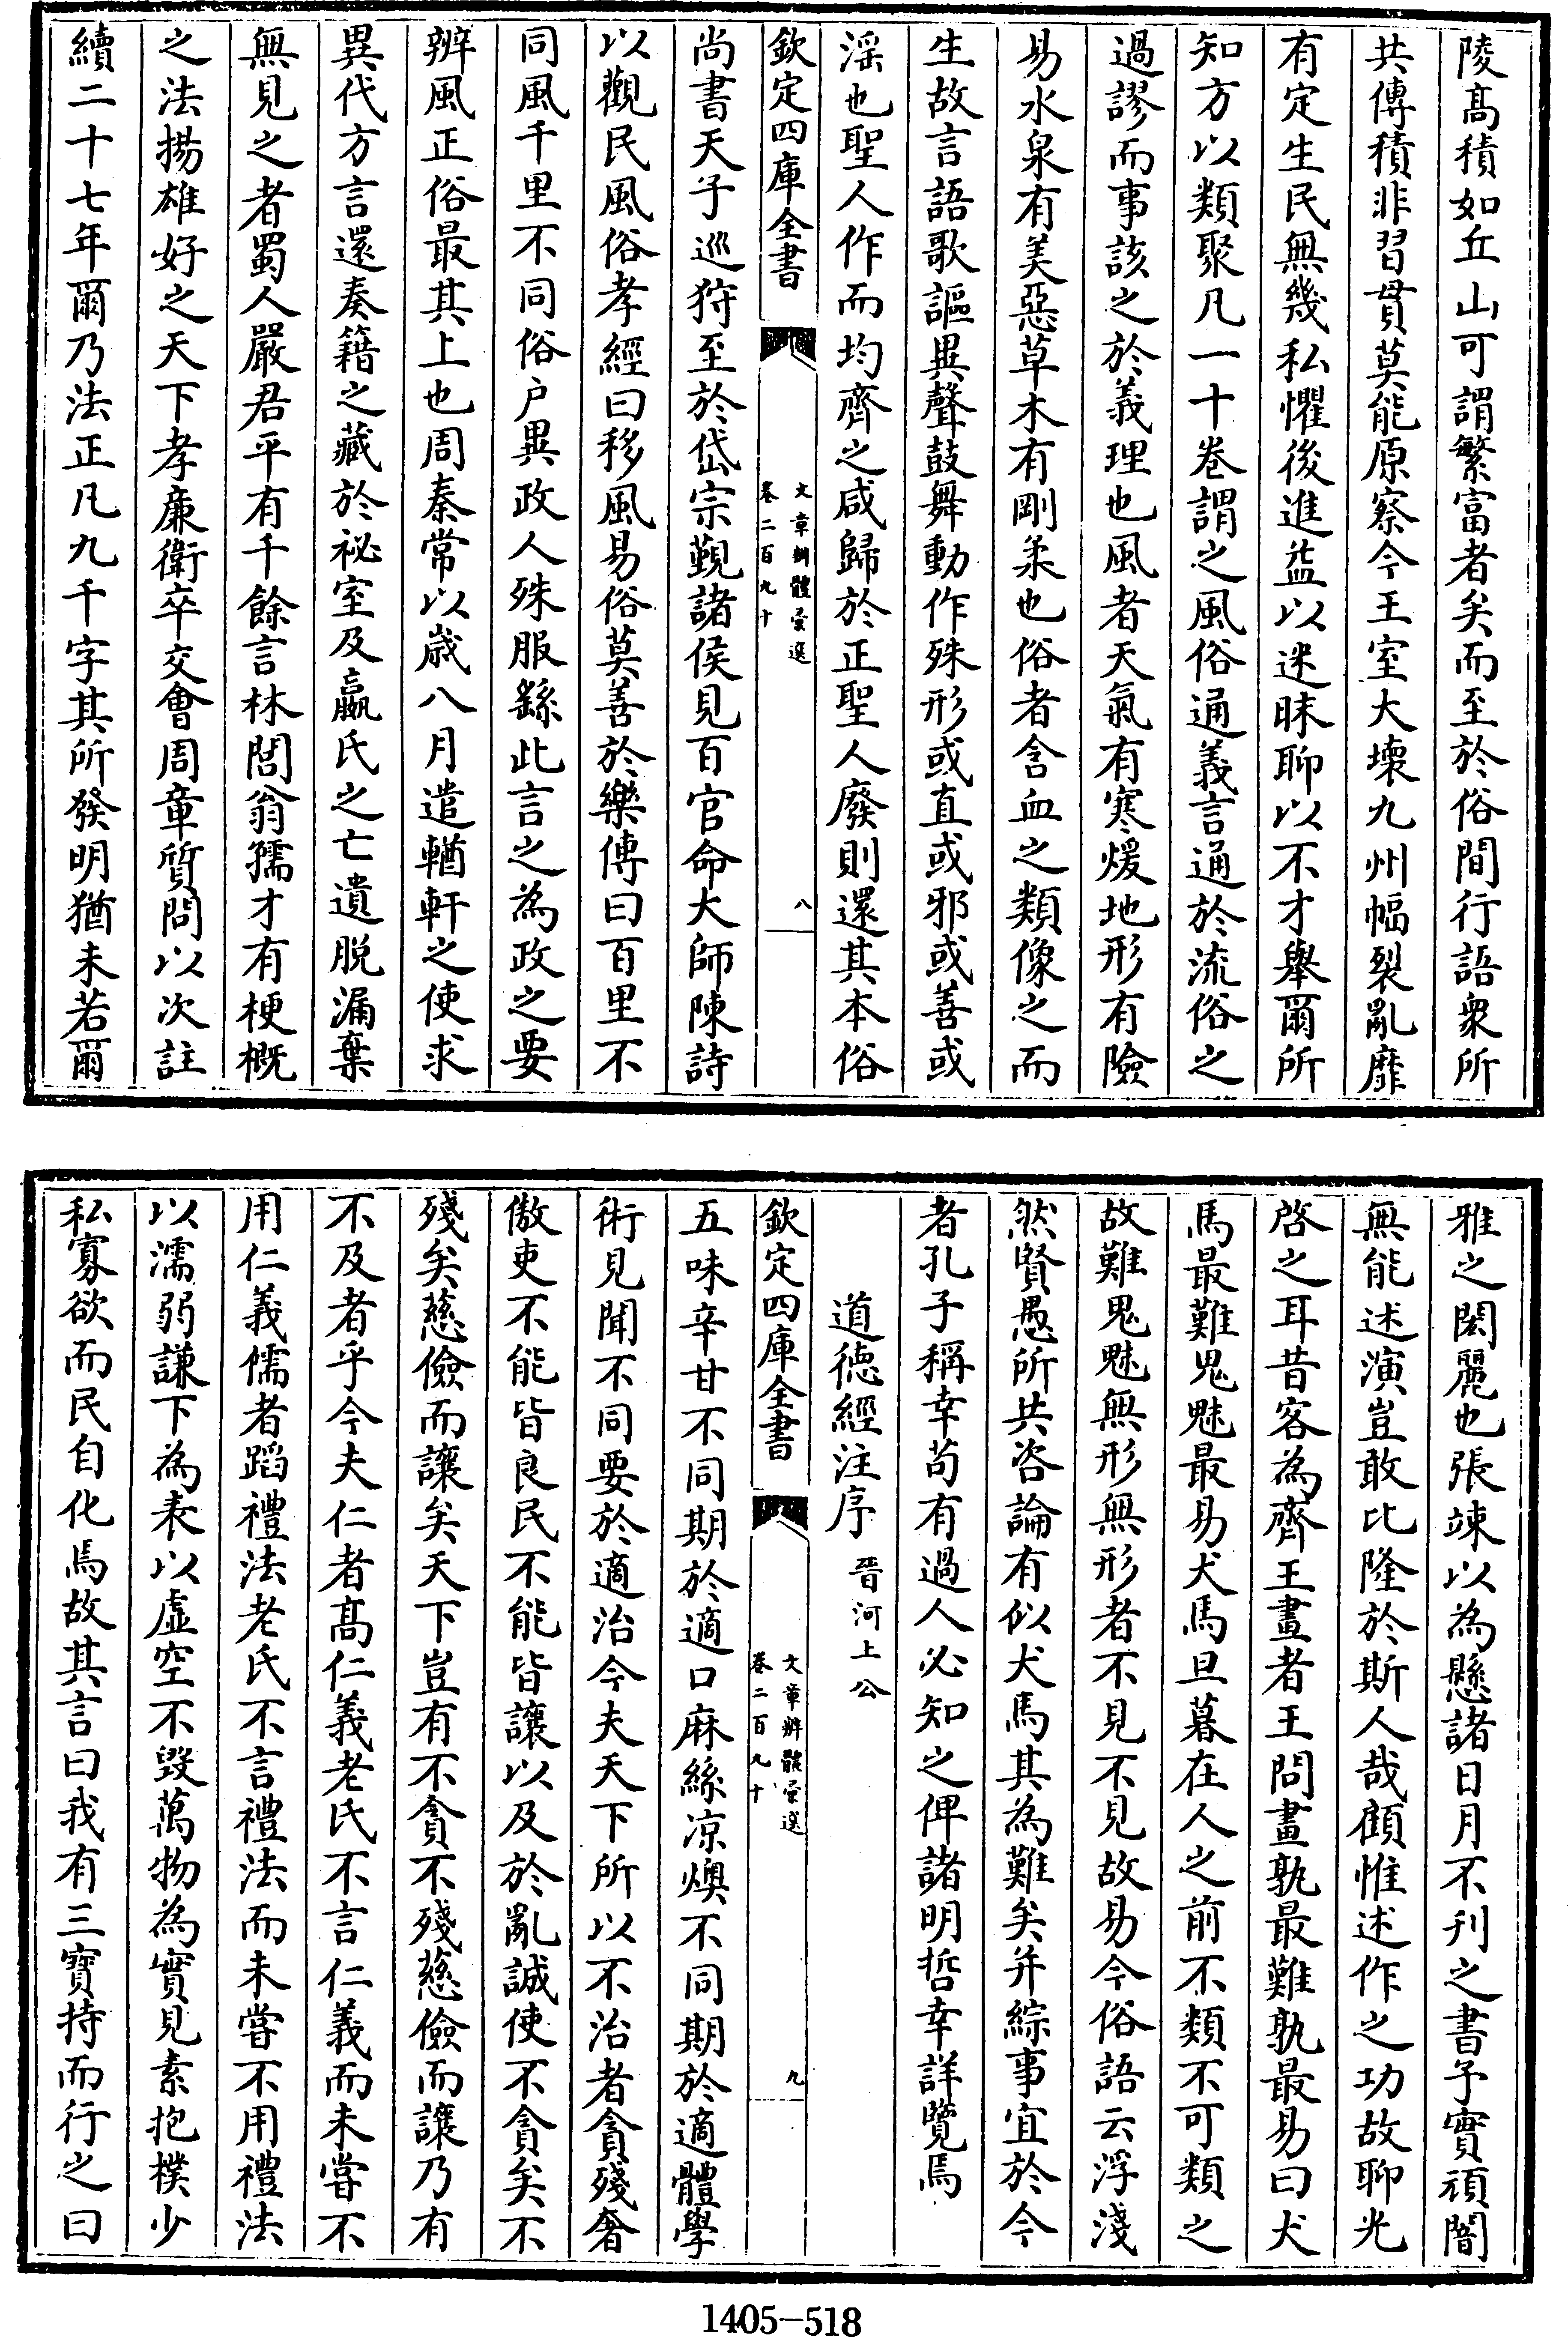 陵髙積如丘山可謂繁富者矣而至於俗間行語衆所
共傳積非習貫莫能原察今王室大壞九州幅裂亂靡
有定生民無幾私懼後進益以迷昧聊以不才舉爾所
知方以類聚凡一十卷謂之風俗通義言通於流俗之
過謬而事該之於義理也風者天氣有寒煖地形有險
易水泉有美惡草木有剛柔也俗者含血之類像之而
生故言語歌謳異聲鼓舞動作殊形或直或邪或善或
淫也聖人作而均齊之咸歸於正聖人廢則還其本俗
欽定四庫全書
文章辨體彚選
卷二百九十
八
尚書天子巡狩至於岱宗覲諸侯見百官命大師陳詩
以觀民風俗孝經曰移風易俗莫善於樂傳曰百里不
同風千里不同俗户異政人殊服繇此言之為政之要
辨風正俗最其上也周秦常以歳八月遣輶軒之使求
異代方言還奏籍之藏於祕室及嬴氏之亡遺脱漏棄
無見之者蜀人嚴君平有千餘言林閭翁孺才有梗概
之法揚雄好之天下孝亷衛卒交㑹周章質問以次註
續二十七年爾乃法正凡九千字其所發明猶未若爾
雅之閎麗也張竦以為懸諸日月不刊之書予實頑闇
無能述演豈敢比隆於斯人哉顧惟述作之功故聊光
啓之耳昔客為齊王畫者王問畫孰最難孰最易曰犬
馬最難鬼魅最易犬馬旦暮在人之前不類不可類之
故難鬼魅無形無形者不見不見故易今俗語云浮淺
然賢愚所共咨論有似犬馬其為難矣并綜事宜於今
者孔子稱幸苟有過人必知之俾諸明哲幸詳覽焉
道徳經注序 晉河上公
欽定四庫全書
文章辨體彚選
卷二百九十
九
五味辛甘不同期於適口麻絲凉燠不同期於適體學
術見聞不同要於適治今夫天下所以不治者貪殘奢
傲吏不能皆良民不能皆讓以及於亂誠使不貪矣不
殘矣慈儉而讓矣天下豈有不貪不殘慈儉而讓乃有
不及者乎今夫仁者髙仁義老氏不言仁義而未嘗不
用仁義儒者蹈禮法老氏不言禮法而未嘗不用禮法
以濡弱謙下為表以虚空不毁萬物為實見素抱樸少
私寡欲而民自化焉故其言曰我有三寶持而行之曰
1405-518